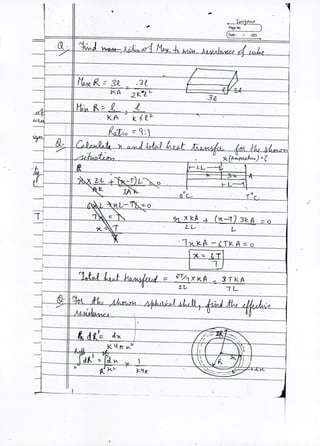 Page No.
Date: / /20
Q. Find max, ratio of Max. to min. resistance of cube
Max R = 3l / KA = 3l / 2K l²
Min R = l / KA = l / K 6 l²
l
2l
3l
Ratio = 9:1
Q. Calculate x and total heat transfer for the shown
situation.
x (temperature) = ?
2L
K
3K
A
L
0°C
T°C
x × KA / 2L + (x-T) 3KA / L = 0
7xKA - 6TKA = 0
x = 6T / 7
Total heat transfered = 6T/7 × KA / 2L = 3TKA / 7L
Q. For the shown spherical shell, find the effective
resistance.
dR' = dx / K 4π x²
∫dR' = ∫dx / x² × 1 / K4π
2R
R
x
dx